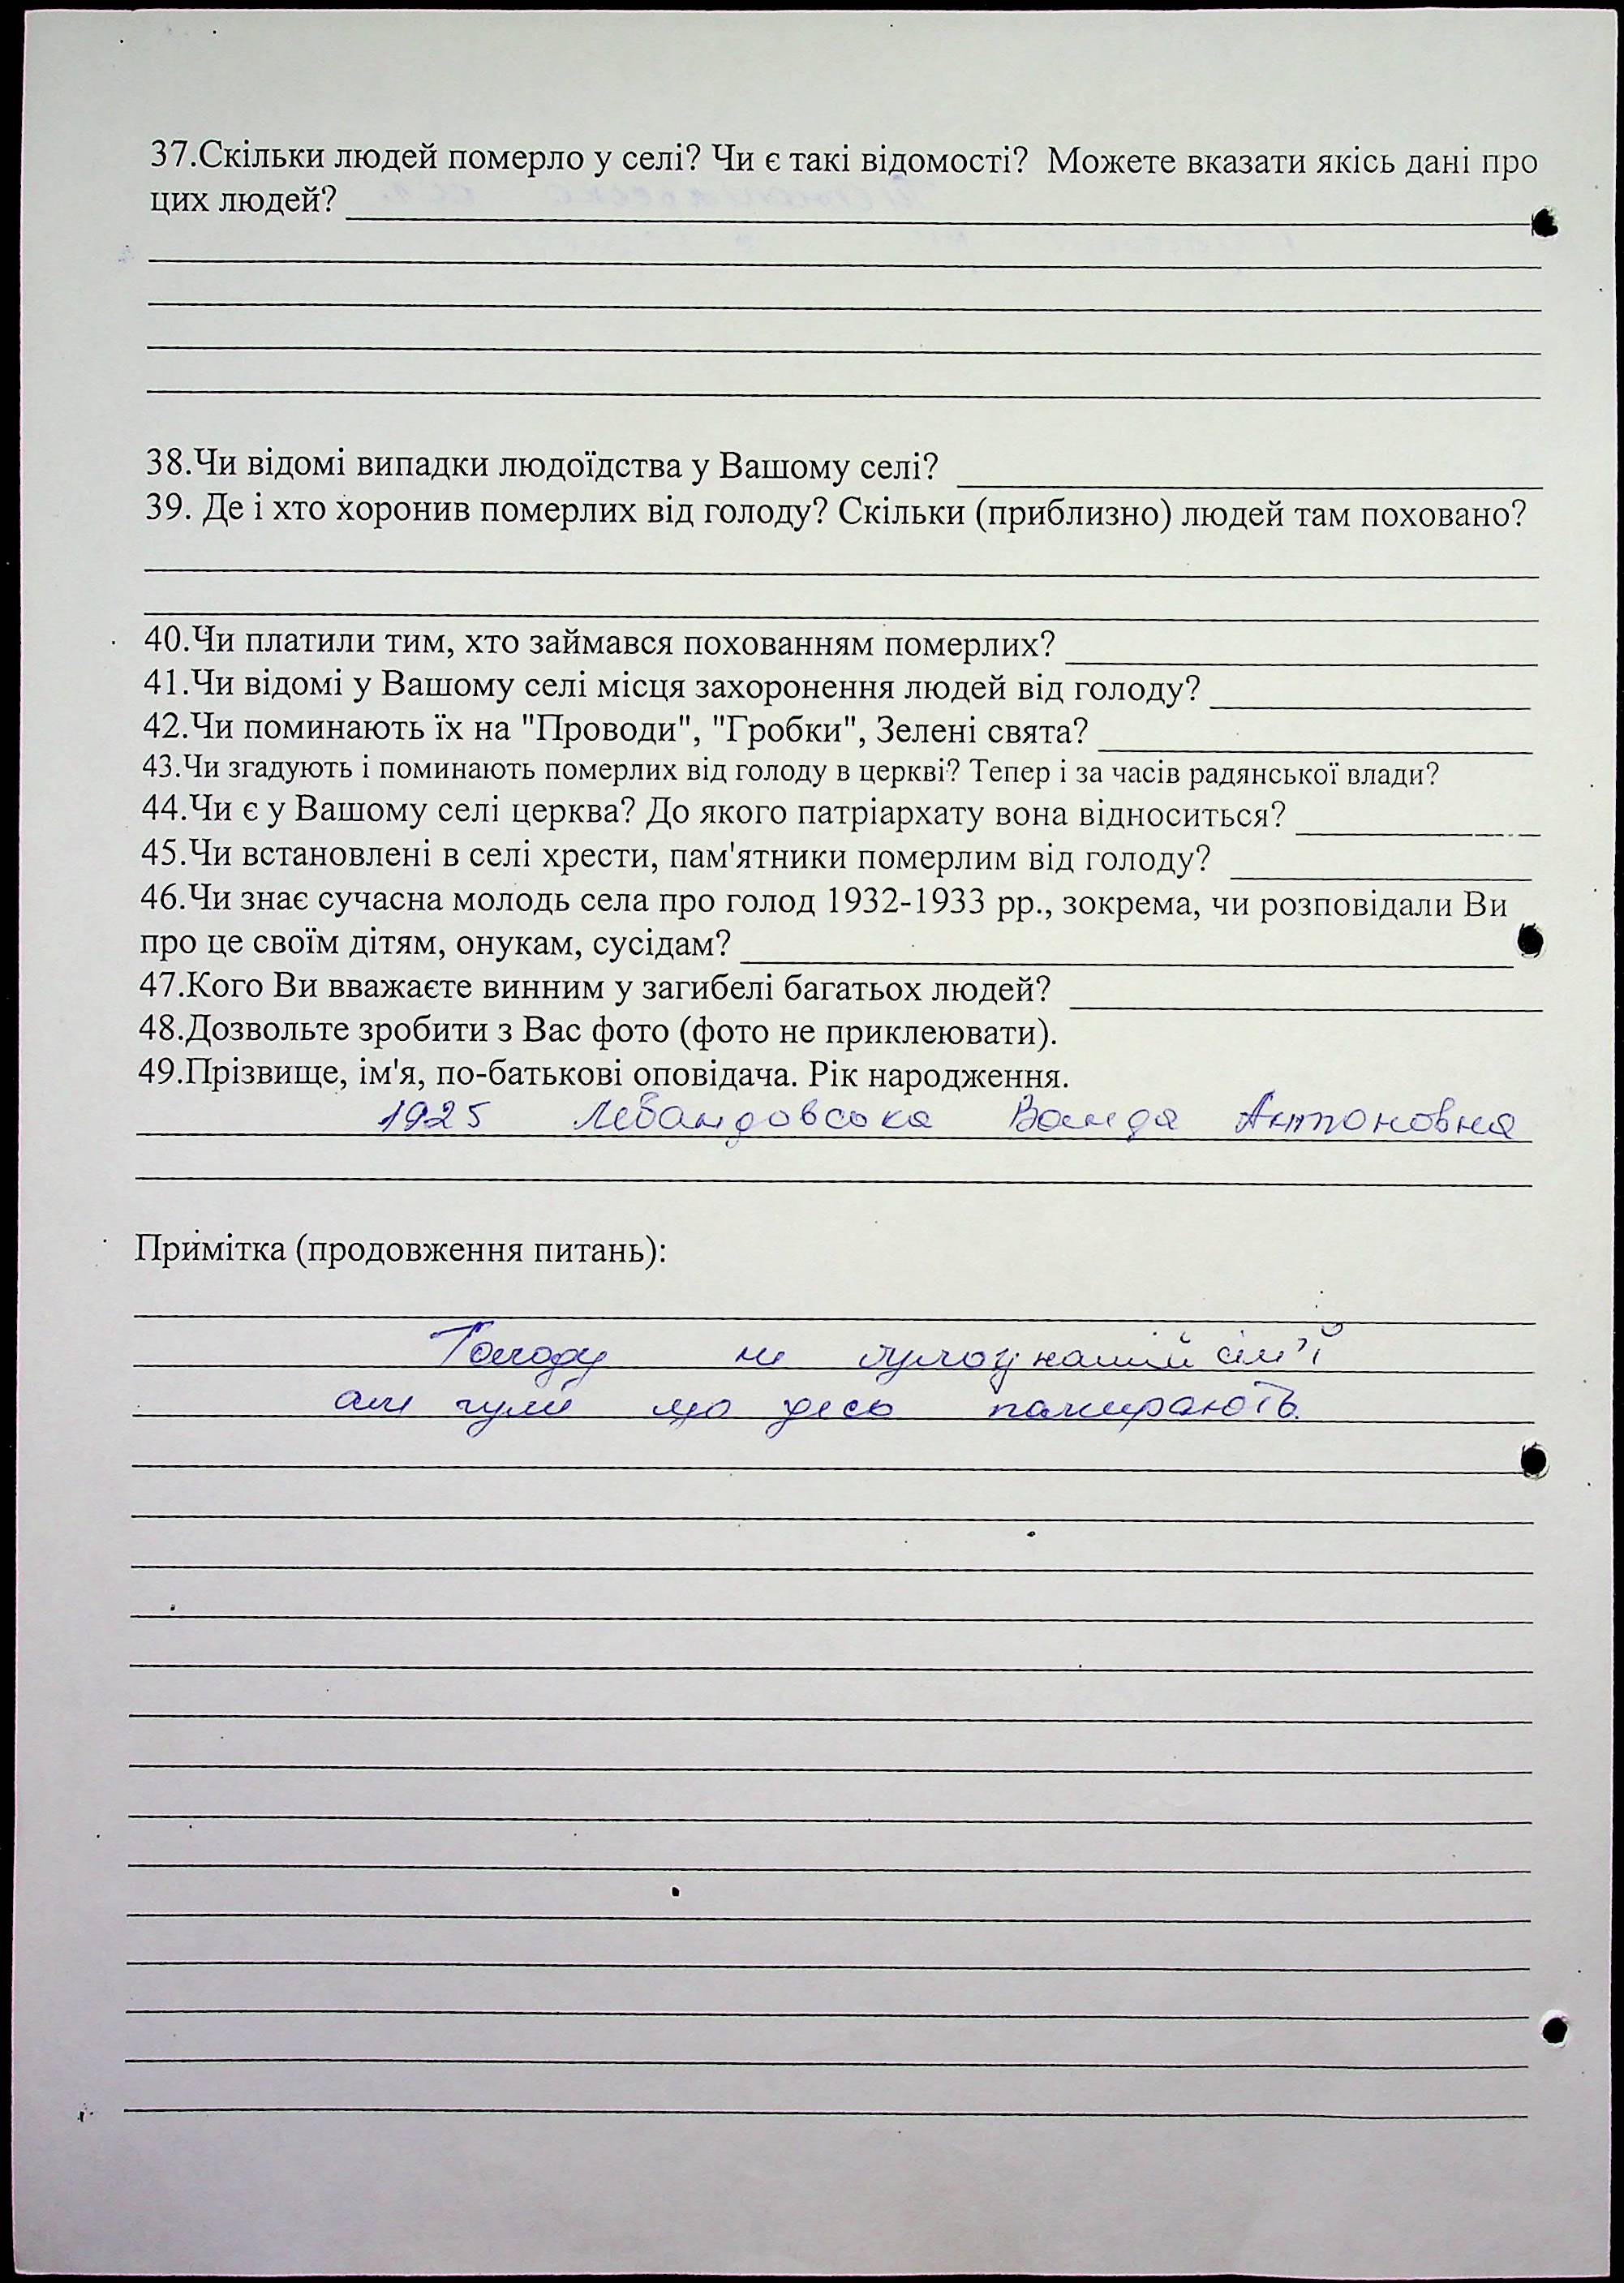 37.Скільки людей померло у селі? Чи є такі відомості? Можете вказати якісь дані про
цих людей?
38.Чи відомі випадки людоїдства у Вашому селі?
39. Де і хто хоронив померлих від голоду? Скільки (приблизно) людей там поховано?
40.Чи платили тим, хто займався похованням померлих?
41.Чи відомі у Вашому селі місця захоронення людей від голоду?
42.Чи поминають їх на "Проводи", "Гробки", Зелені свята?
43.Чи згадують і поминають померлих від голоду в церкві? Тепер і за часів радянської влади?
44.Чи є у Вашому селі церква? До якого патріархату вона відноситься?
45.Чи встановлені в селі хрести, пам'ятники померлим від голоду?
46.Чи знає сучасна молодь села про голод 1932-1933 рр., зокрема, чи розповідали Ви
про це своїм дітям, онукам, сусідам?
47.Кого Ви вважаєте винним у загибелі багатьох людей?
48.Дозвольте зробити з Вас фото (фото не приклеювати).
49.Прізвище, ім'я, по-батькові оповідача. Рік народження.
1925 Левандовська Ванда Антоновна
Примітка (продовження питань):
Голоду не було у нашій сім'ї
але чули що десь помирають.